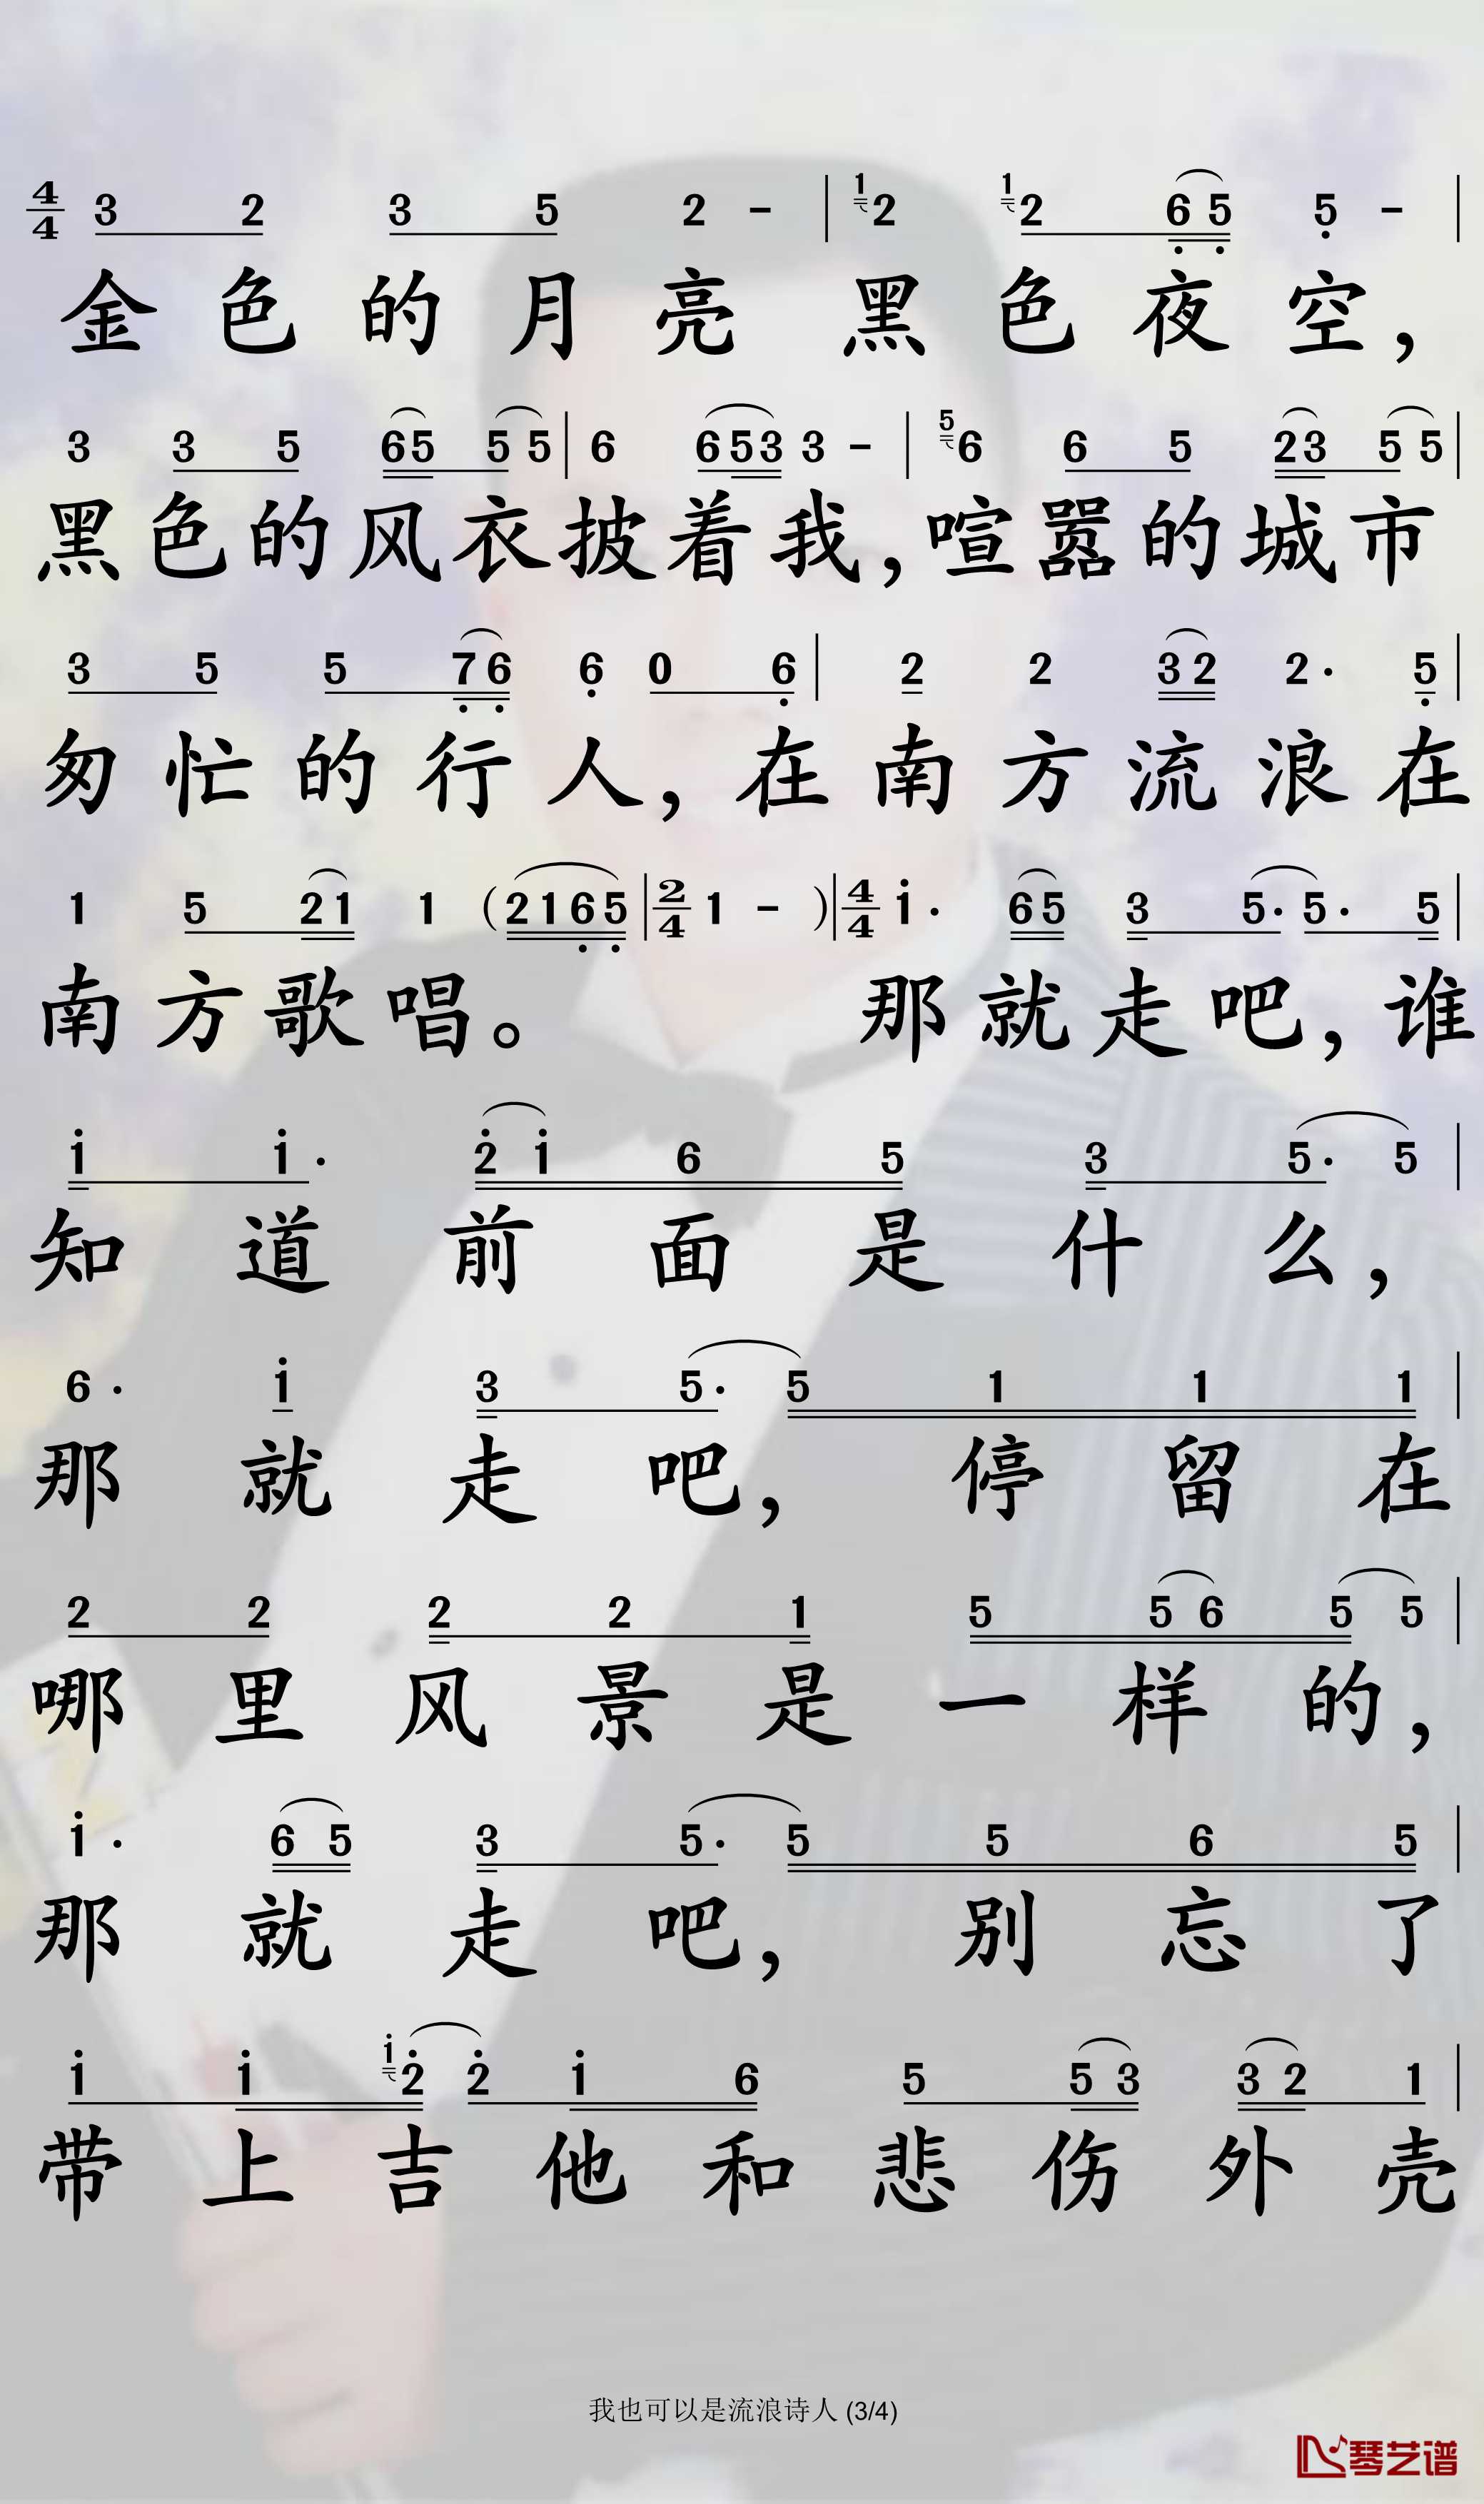 4/4 3 2 3 5 2 - | 1 2 1 2 6 5 5 - |
金色的月亮 黑色夜空，
3 3 5 6 5 5 5 | 6 6 5 3 3 - | 5 6 6 5 2 3 5 5 |
黑色的风衣披着我，喧嚣的城市
3 5 5 7 6 6 0 6 | 2 2 3 2 2 · 5 |
匆忙的行人，在南方流浪在
1 5 2 1 1 (2 1 6 5 | 2/4 1 - ) | 4/4 1 · 6 5 3 5 · 5 · 5 |
南方歌唱。 那就走吧，谁
1 1 · 2 1 6 5 3 5 · 5 |
知道前面是什么，
6 · 1 3 5 · 5 1 1 1 |
那就走吧，停留在
2 2 2 2 1 5 5 6 5 5 |
哪里风景是一样的，
1 · 6 5 3 5 · 5 5 6 5 |
那就走吧，别忘了
1 1 1 2 2 1 6 5 5 3 3 2 1 |
带上吉他和悲伤外壳
我也可以是流浪诗人 (3/4)
琴艺谱